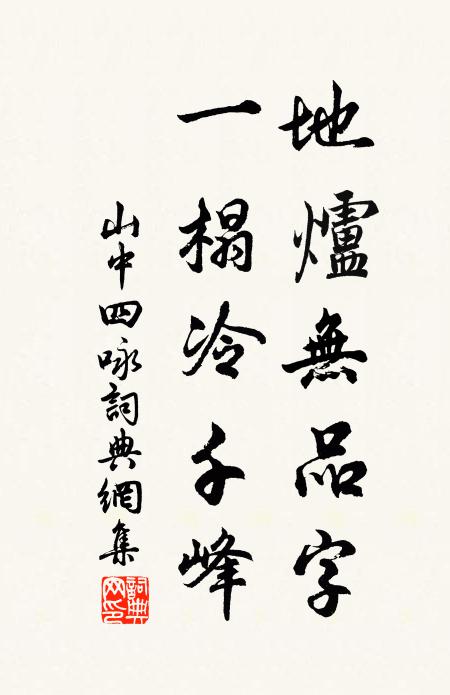 地爐無品字
一榻冷千峰
山中四咏詞典網集
詞典网印